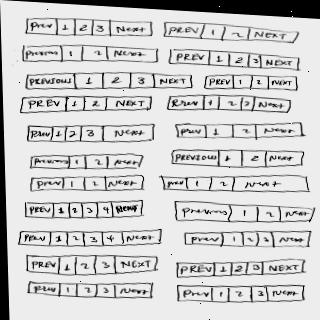 Prev 1 2 3 Next PREV 1 2 NEXT
Previous 1 2 Next PREV 1 2 3 NEXT
PREVIOUS 1 2 3 NEXT PREV 1 2 NEXT
PREV 1 2 NEXT Prev 1 2 3 Next
Prev 1 2 3 Next Prev 1 2 Next
Previous 1 2 Next PREVIOUS 1 2 Next
Prev 1 2 Next Prev 1 2 Next
PREV 1 2 3 4 Next Previous 1 2 Next
Prev 1 2 3 4 Next Prev 1 2 3 Next
PREV 1 2 3 NEXT PREV 1 2 3 NEXT
Prev 1 2 3 Next Prev 1 2 3 Next